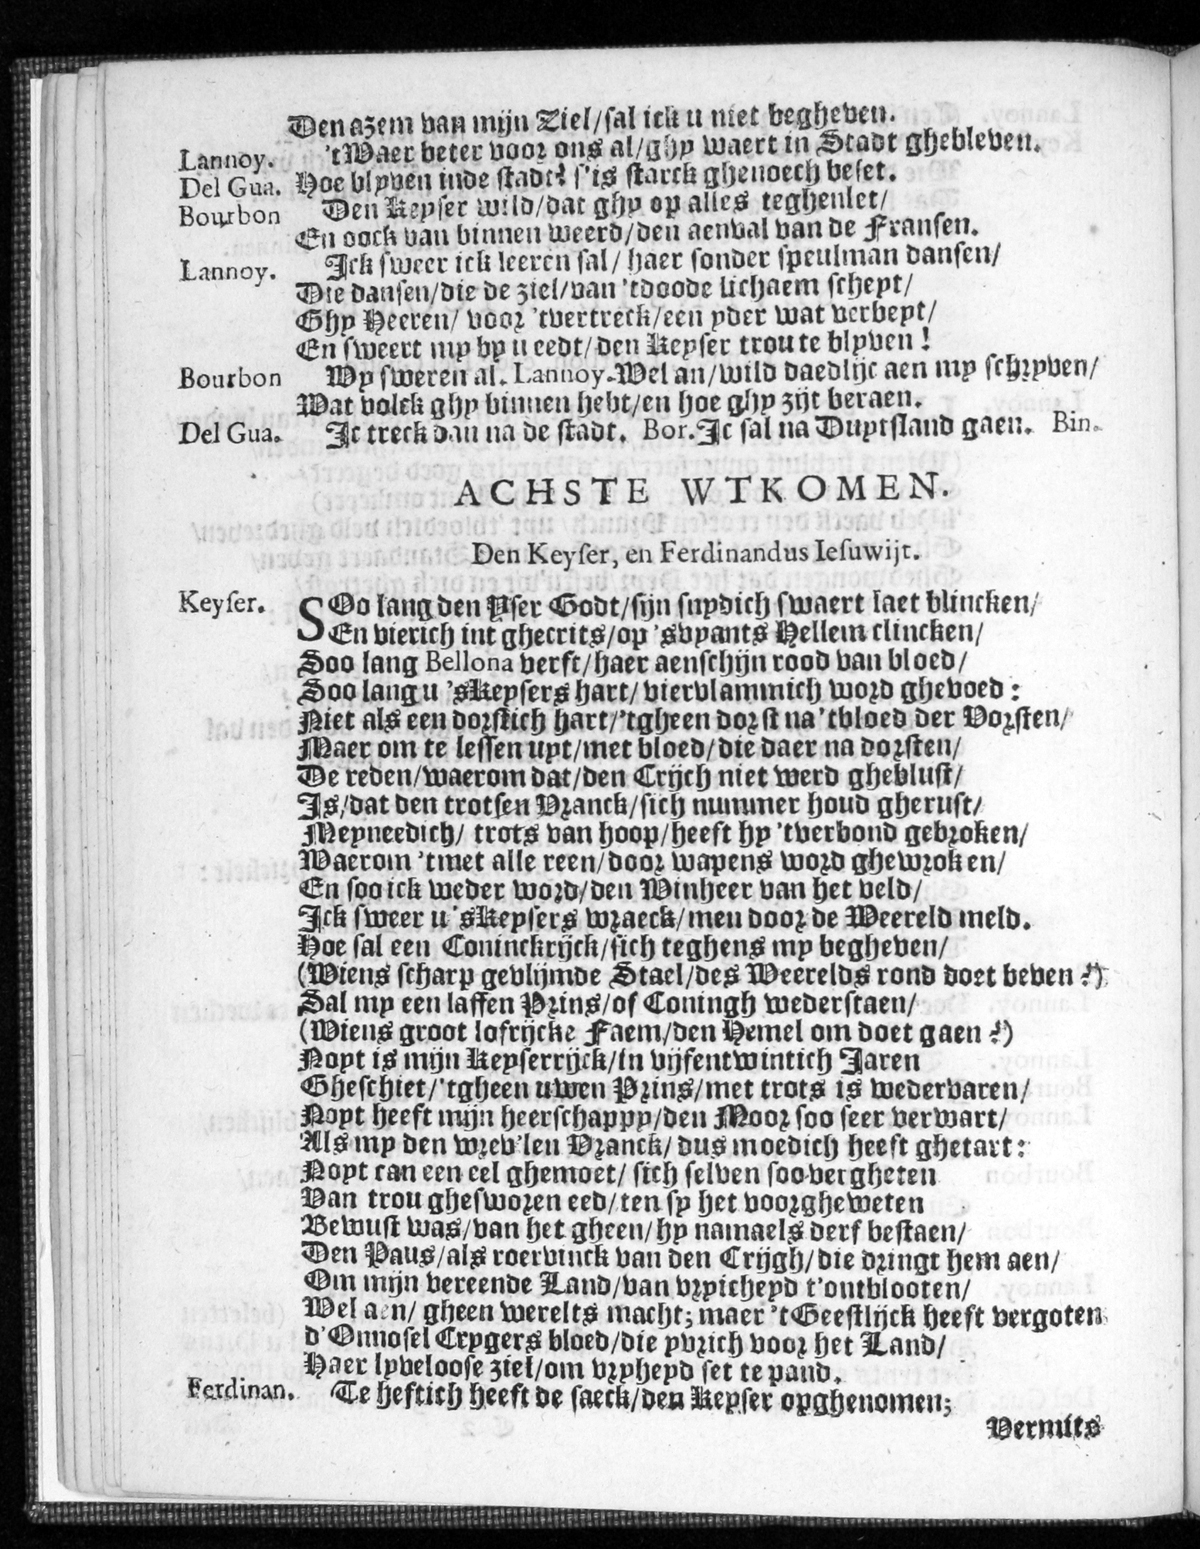 Den azem van mijn Ziel/sal ick u niet begheven.
Lannoy. 'tWaer beter voor ons al/ghy waert in Stadt ghebleven.
Del Gua. Hoe blyven inde stadt? s'is starck ghenoech beset.
Bourbon Den Keyser wild/dat ghy op alles teghenlet/
En oock van binnen weerd/den aenval van de Fransen.
Lannoy. Ick sweer ick leeren sal/ haer sonder speulman dansen/
Die dansen/die de ziel/van 'tdoode lichaem schept/
Ghy Heeren/ voor 'tvertreck/een yder wat verbeyt/
En sweert my by u eedt/den Keyser trou te blyven!
Bourbon Wy sweren al. Lannoy. Wel an/wild daedlijc aen my schryven/
Wat volck ghy binnen hebt/en hoe ghy zijt beraen.
Del Gua. Ic treck dan na de stadt. Bor. Ic sal na Duytsland gaen. Bin.
ACHSTE WTKOMEN.
Den Keyser, en Ferdinandus Iesuwijt.
Keyser. SOo lang den Yser Godt/sijn snydich swaert laet blincken/
En vierich int ghecrits/op 'svyants Hellem clincken/
Soo lang Bellona verft/haer aenschijn rood van bloed/
Soo lang u 'sKeysers hart/viervlammich word ghevoed:
Niet als een dorstich hart/'tgheen dorst na 'tbloed der Vorsten/
Maer om te lessen uyt/met bloed/die daer na dorsten/
De reden/waerom dat/den Crijch niet werd gheblust/
Is/dat den trotsen Vranck/sich nummer houd gherust/
Meyneedich/ trots van hoop/heeft hy 'tverbond gebroken/
Waerom 'tmet alle reen/door wapens word ghewroken/
En soo ick weder word/den Winheer van het veld/
Ick sweer u 'sKeysers wraeck/men door de Weereld meld.
Hoe sal een Coninckrijck/sich teghens my begheven/
(Wiens scharp gevlijmde Stael/des Weerelds rond doet beven?)
Sal my een laffen Prins/of Coningh wederstaen/
(Wiens groot lofrijcke Faem/den Hemel om doet gaen?)
Noyt is mijn Keyserrijck/in vijfentwintich Jaren
Gheschiet/'tgheen uwen Prins/met trots is wedervaren/
Noyt heeft mijn heerschappy/den Moor soo seer verwart/
Als my den wrev'len Vranck/dus moedich heeft ghetart:
Noyt can een eel ghemoet/sich selven soo vergheten
Van trou ghesworen eed/ten sy het voorgheweten
Bewust was/van het gheen/hy namaels derf bestaen/
Den Paus/als roervinck van den Crijgh/die dringt hem aen/
Om mijn vereende Land/van vryicheyd t'ontblooten/
Wel aen/ gheen werelts macht; maer 't Geestlijck heeft vergoten
d'Onnosel Crygers bloed/die pyrich voor het Land/
Haer lyveloose ziel/om vryheyd set te pand.
Ferdinan. Te heftich heeft de saeck/den Keyser opghenomen;
Vermits